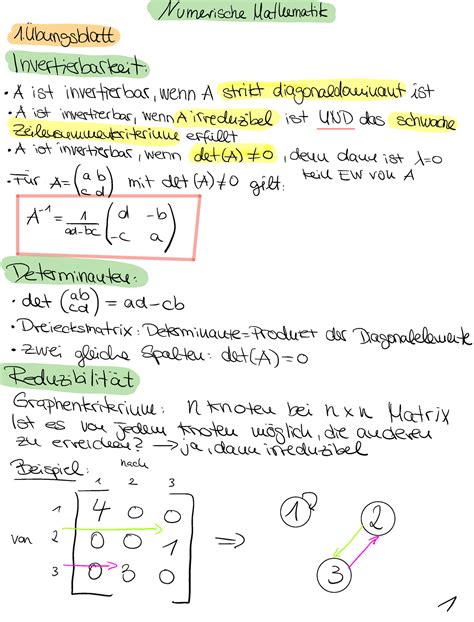 Numerische Mathematik
1Übungsblatt
Invertierbarkeit:
• A ist invertierbar, wenn A strikt diagonaldominant ist
• A ist invertierbar, wenn A irreduzibel ist UND das schwache
Zeilensummenkriterium erfüllt
• A ist invertierbar, wenn det(A) ≠ 0, denn dann ist λ=0
kein EW von A
• Für A = (a b / c d) mit det(A) ≠ 0 gilt:
A⁻¹ = 1/(ad-bc) (d -b / -c a)
Determinanten:
• det (a b / c d) = ad - cb
• Dreiecksmatrix: Determinante = Product der Diagonalelemente
• zwei gleiche Spalten: det(A) = 0
Reduzibilität
Graphenkriterium: n Knoten bei n x n Matrix
Ist es von jedem Knoten möglich, die anderen
zu erreichen? → ja, dann irreduzibel
Beispiel:
nach
1 2 3
1 4 0 0
von 2 0 0 1
3 0 3 0
⇒
1
2
3
1